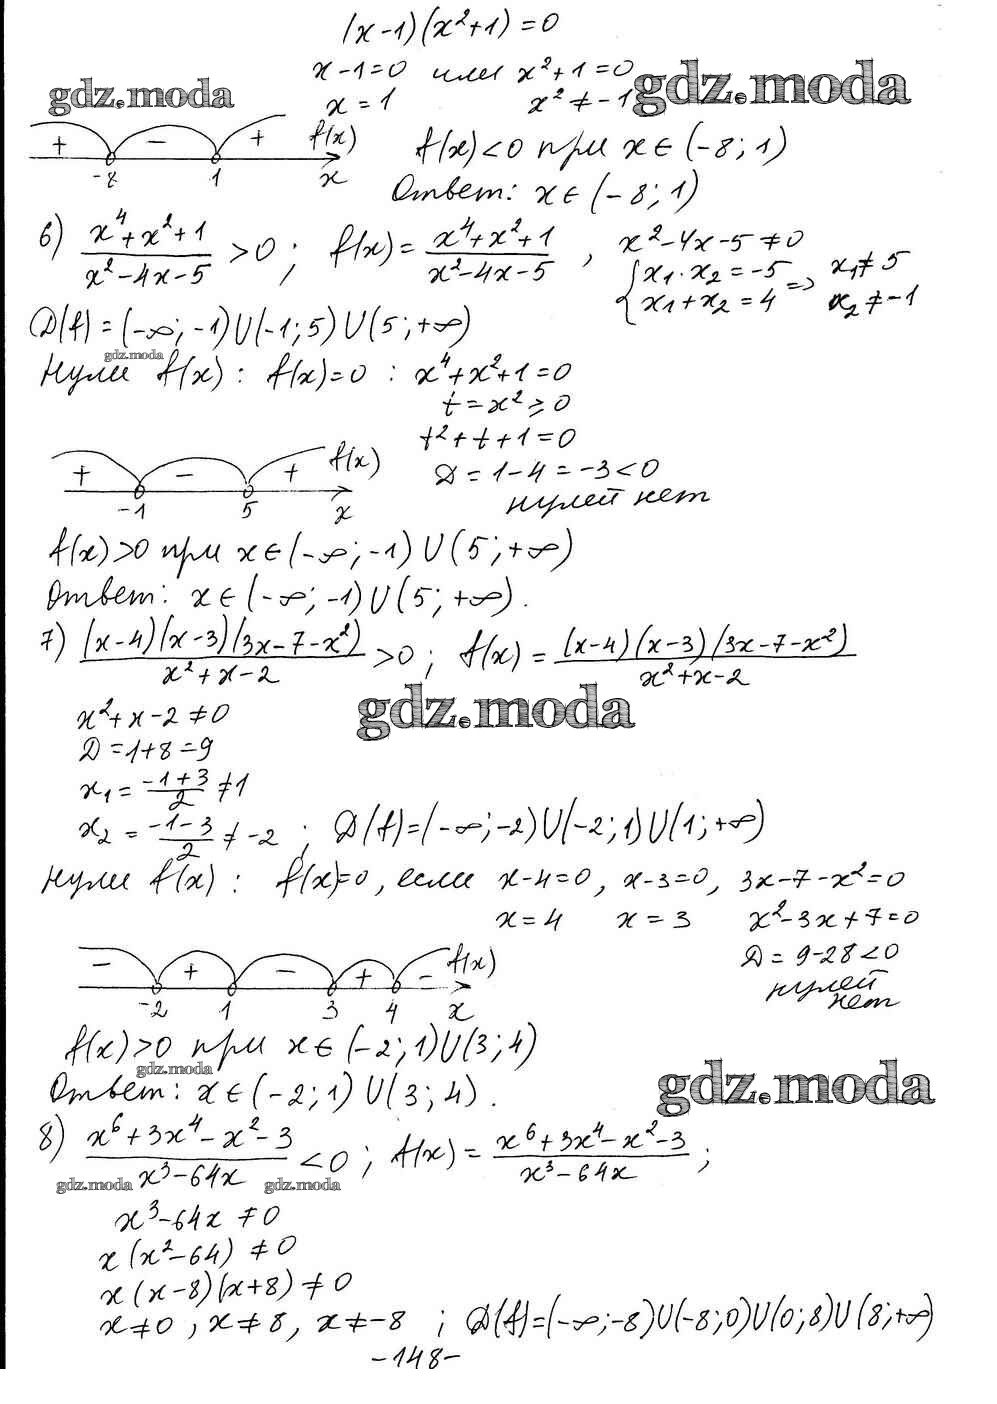 (x-1)(x²+1)=0
x-1=0 или x²+1=0
gdz.moda gdz.moda
x=1 x²≠-1
+ - + f(x) f(x)<0 при x∈(-8;1)
-8 1 x
Ответ: x∈(-8;1)
6) (x⁴+x²+1)/(x²-4x-5) >0; f(x)=(x⁴+x²+1)/(x²-4x-5), x²-4x-5≠0
{x₁·x₂=-5 => x₁≠5
{x₁+x₂=4 x₂≠-1
D(f)=(-∞;-1)U(-1;5)U(5;+∞)
gdz.moda
Нули f(x): f(x)=0: x⁴+x²+1=0
t=x²≥0
t²+t+1=0
+ - + f(x) D=1-4=-3<0
-1 5 x нулей нет
f(x)>0 при x∈(-∞;-1)U(5;+∞)
Ответ: x∈(-∞;-1)U(5;+∞).
7) ((x-4)(x-3)(3x-7-x²))/(x²+x-2) >0; f(x)=((x-4)(x-3)(3x-7-x²))/(x²+x-2)
x²+x-2≠0 gdz.moda
D=1+8=9
x₁=(-1+3)/2≠1
x₂=(-1-3)/2≠-2; D(f)=(-∞;-2)U(-2;1)U(1;+∞)
Нули f(x): f(x)=0, если x-4=0, x-3=0, 3x-7-x²=0
x=4 x=3 x²-3x+7=0
- + - + - f(x) D=9-28<0
-2 1 3 4 x нулей нет
f(x)>0 при x∈(-2;1)U(3;4)
gdz.moda gdz.moda
Ответ: x∈(-2;1)U(3;4).
8) (x⁶+3x⁴-x²-3)/(x³-64x) <0; f(x)=(x⁶+3x⁴-x²-3)/(x³-64x);
gdz.moda gdz.moda
x³-64x≠0
x(x²-64)≠0
x(x-8)(x+8)≠0
x≠0, x≠8, x≠-8; D(f)=(-∞;-8)U(-8;0)U(0;8)U(8;+∞)
-148-